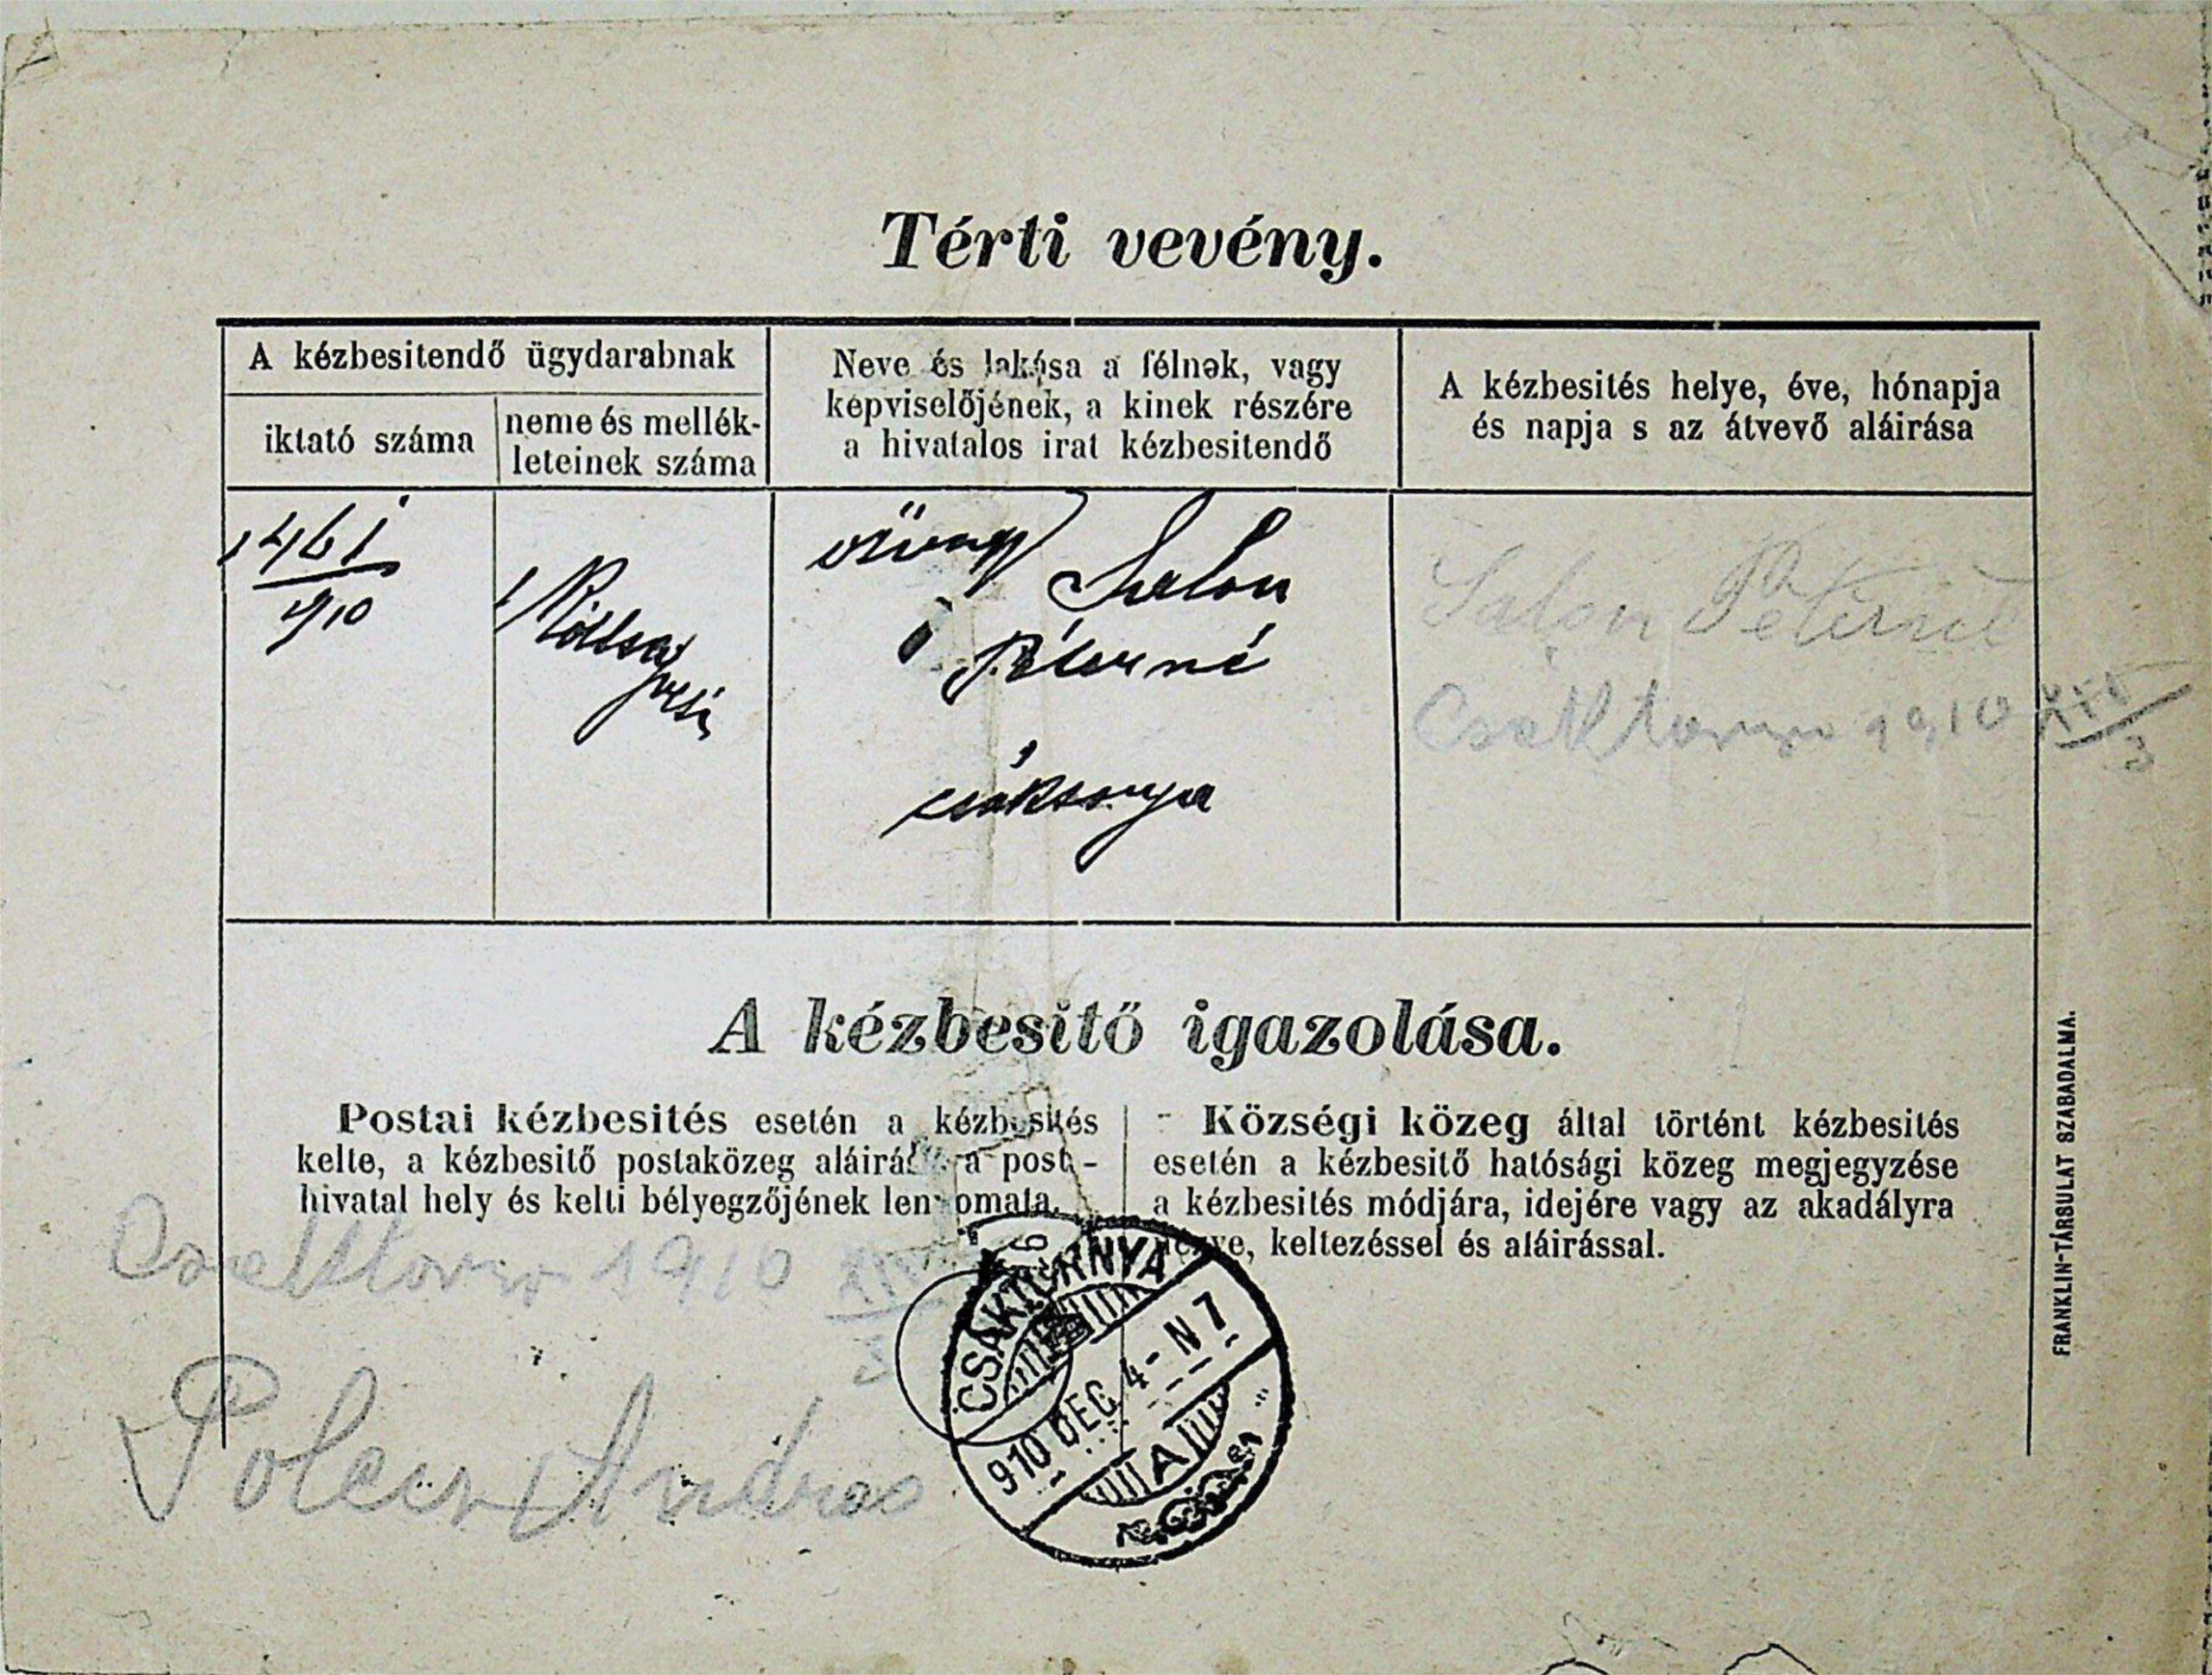 Térti vevény.
A kézbesitendő ügydarabnak
iktató száma
neme és mellék-
leteinek száma
Neve és lakása a félnek, vagy
képviselőjének, a kinek részére
a hivatalos irat kézbesitendő
A kézbesités helye, éve, hónapja
és napja s az átvevő aláirása
1461
910
1
özvegy Salon
Péterné
Salon Péterné
1910 XII
3
A kézbesitő igazolása.
Postai kézbesités esetén a kézbesités
kelte, a kézbesitő postaközeg aláirása a post-
hivatal hely és kelti bélyegzőjének lenyomata.
Községi közeg által történt kézbesités
esetén a kézbesitő hatósági közeg megjegyzése
a kézbesités módjára, idejére vagy az akadályra
nézve, keltezéssel és aláirással.
1910 XII
3
András
CSÁKTORNYA
910 DEC 4-N 7
A
FRANKLIN-TÁRSULAT SZABADALMA.